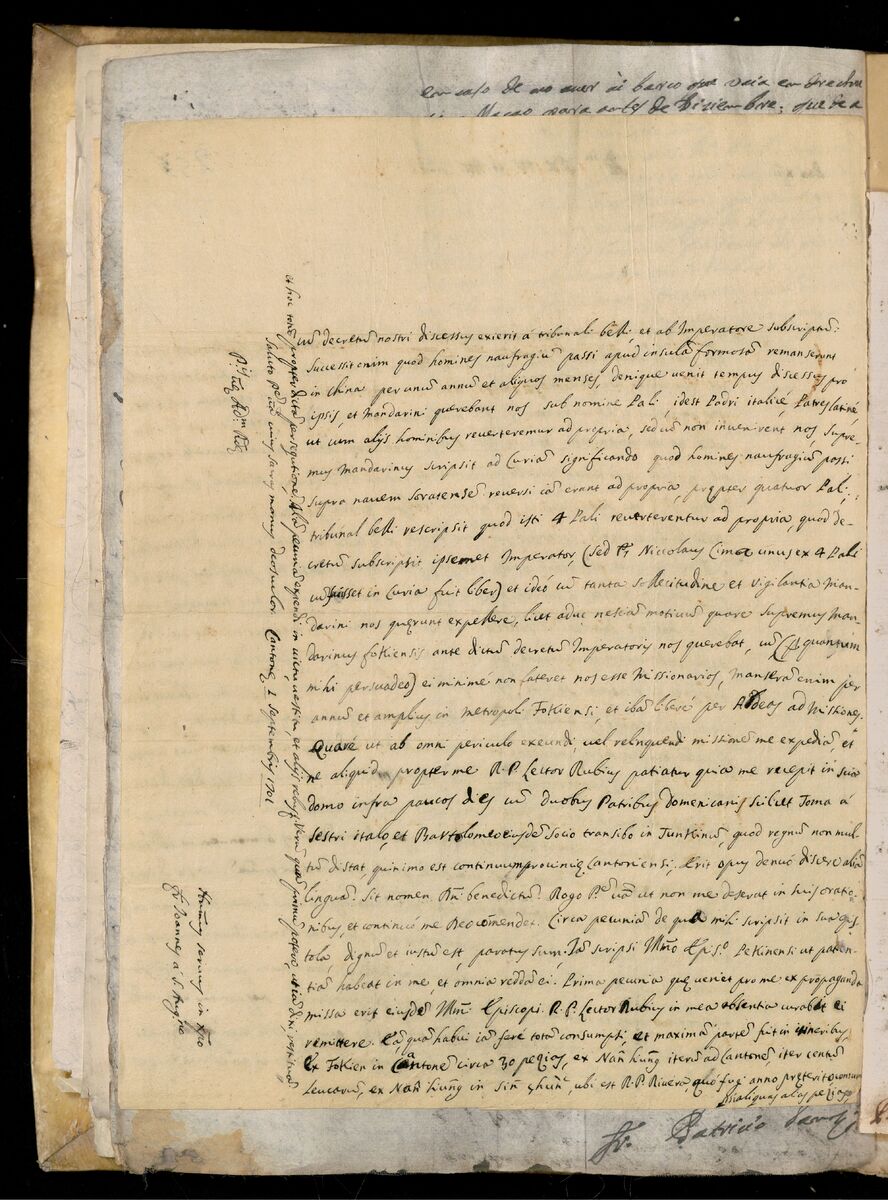 en caso de no auer ai barco que vaia en derechura
Macao para antes de Diziembre, que ve a
cũ decretũ nostri discessus exierit á tribunali belli et ab Imperatore subscriptũ:
Successit enim quod homines naufragiũ passi apud insulã formosã remanserunt
in China per unũ annũ et aliquos menses, denique venit tempus discessus pro
ipsis, et Mandarini querebant nos sub nomine Pali, idest Padri italicé, Patres latiné,
ut cum alijs hominibus reverteremur ad propria, sed cũ non invenirent nos, supre-
mus Mandarinus scripsit ad Curiã significando quod homines naufragiũ passi
supra navem Suratensẽ reversi iã erant ad propria, pręter quatuor Pali;
tribunal belli rescripsit quod isti 4 Pali reverterentur ad propria, quod de-
cretũ subscripsit ipsemet Imperator, (sed P. Niccolaus Cima unus ex 4 Pali
cũ fuisset in Curia fuit liber) et ideó cũ tanta sollicitudine et vigilantia Man-
darini nos quęrunt expellere, licet aduc nesciã motivũ quare supremus Man-
darinus fokiensis ante dictũ decretũ Imperatoris nos querebat, cũ (Ꝑ quantum
mihi persuadeo) ei minime non lateret nos esse Missionarios, manserã enim per
annũ et amplius in Metropoli Fokiensi, et ibã liberé per Aedes ad Missiones.
Quaré ut ab omni periculo exeundi vel relinquendi missionẽ me expediã, et
ne aliquid propter me R. P. Lector Rubius patiatur quia me recepit in sua
domo infra paucos dies cũ duobus Patribus domenicanis scilicet Toma á
Sestri italo, et Bartolomeo eiusdẽ socio transibo in Tunkinũ, quod regnũ non mul-
tũ distat, quinimo est continuum provincię Cantoniensi, Erit opus denuó discere aliã
linguã. Sit nomen Dñi benedictũ. Rogo P.ẽ vr̃ã ut non me deserat in suis oratio-
nibus, et continuó me Recõmendet. Circa pecuniã de qua mihi scripsit in sua epis-
tola, dignũ et iustũ est, paratus sum. Iã scripsi Illm̃o Epis.º Pekinensi ut patien-
tiã habeat in me et omnia reddã ei. Prima pecunia quę veniet pro me ex propaganda
missa erit eiusdẽ Illm̃i Episcopi. R. P. Lector Rubius in mea absentia curabit ei
remittere. Eã, quã habui iã feré totã consumpsi, et maximã partẽ fuit in itineribus,
ex Fokien in Cantonẽ circa 30 pezias, ex Nañ kuñg iterũ ad Cantonẽ, iter centũ
leucarũ, ex Nañ kuñg in Siñ chuñ, ubi est R. P. Rivera, quó fugi anno pręterito
alias pezias,
et hoc totũ propter dictã persegutionẽ. Aliã pecuniã expendi in victu, vestitu, et alijs rebus. Verũ quã primũ potero,
Saluto P.em vr̃ã cuius sacras manus deosculor. Cantone 1 Septembris 1701
P.tis Vrę̃ Adm Rdę
Hum̃s servus in Xp̃o
Fr Joannes á S. Aug.no
Fr. Patricio